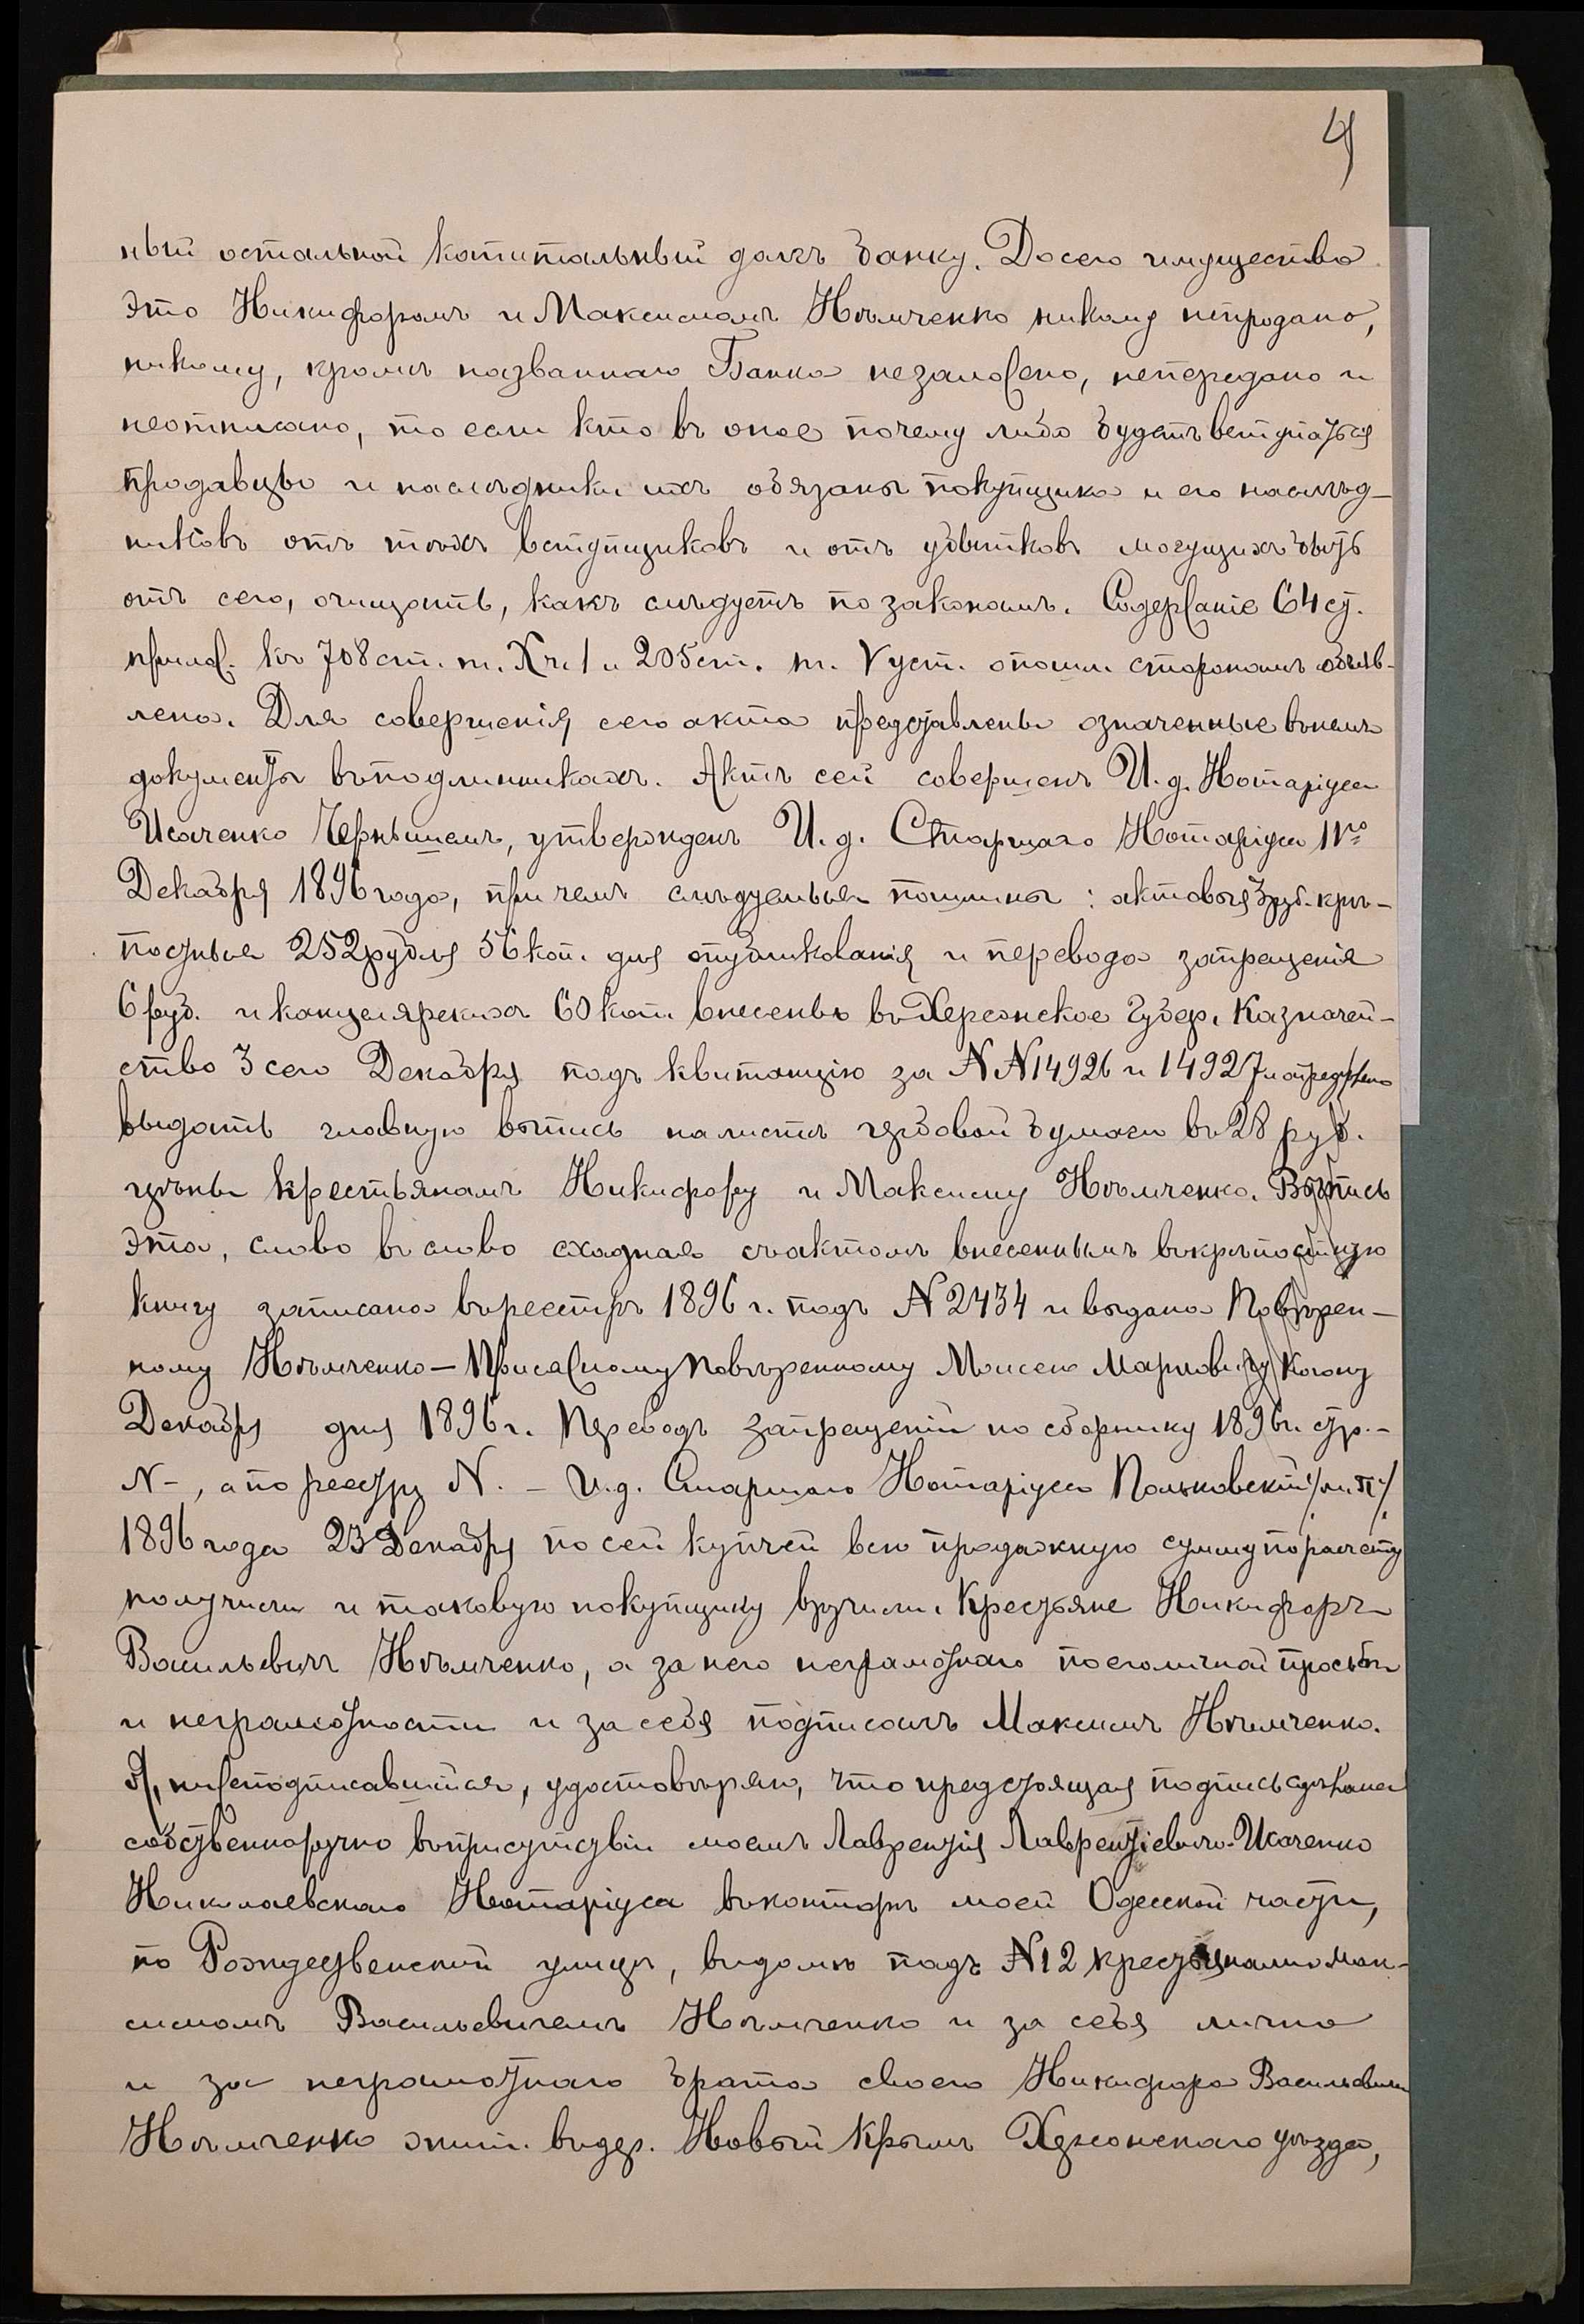 4
ный остальной капитальный долгъ банку. До сего имущество
это Никифоромъ и Максимомъ Нѣмченко никому непродано,
никому, кромѣ названнаго Банка незаложено, непередано и
неотписано, то если кто въ оное почему либо будетъ вступаться
продавцы и наслѣдники ихъ обязаны покупщика и его наслѣд-
никовъ отъ тѣхъ вступщиковъ и отъ убытковъ могущихъ быть
отъ сего, очищать, какъ слѣдуетъ по законамъ. Содержаніе 64 ст.
прилож. къ 708 ст. т. X ч. 1 и 205 ст. т. V уст. о пошл. сторонамъ объяв-
лено. Для совершенія сего акта представлены означенные въ немъ
документы въ подлинникахъ. Актъ сей совершенъ И. д. Нотаріуса
Исаченко Чернымъ, утвержденъ И. д. Старшаго Нотаріуса 11го
Декабря 1896 года, при чемъ слѣдуемыя пошлины: актовыя 3 руб. крѣ-
постныя 252 рубля 56 коп. для опубликованія и перевода запрещенія
6 руб. и канцелярскихъ 60 коп. внесены въ Херсонское Губер. Казначей-
ство 3 сего Декабря подъ квитанцію за NN 14926 и 14927 и опредѣлено
выдать главную выпись на листѣ гербовой бумаги въ 28 руб.
цѣны крестьянамъ Никифору и Максиму Нѣмченко. Выпись
эта, слово въ слово сходная съ актомъ внесеннымъ въ крѣпостную
книгу записана въ реестръ 1896 г. подъ N 2434 и выдана Повѣрен-
ному Нѣмченко – Присяжному Повѣренному Моисею Марковичу Когану
Декабря дня 1896 г. Переводъ запрещеній по сборнику 1896 г. стр. –
N –, а по реестру N. – И. д. Старшаго Нотаріуса Поньковскій /м. п./
1896 года 23 Декабря по сей купчей всю продажную сумму по расчету
получили и таковую покупщику вручили. Крестьяне Никифоръ
Васильевичъ Нѣмченко, а за него неграмотнаго по его личной просьбѣ
и неграмотности и за себя подписалъ Максимъ Нѣмченко.
Я, нижеподписавшійся, удостовѣряю, что предстоящая подпись сдѣлана
собственноручно въ присутствіи моемъ Лаврентія Лаврентіевича Исаченко
Николаевскаго Нотаріуса въ конторѣ моей Одесской части,
по Рождественской улицѣ, въ домѣ подъ N 12 крестьяниномъ Мак-
симомъ Васильевичемъ Нѣмченко и за себя лично
и за неграмотнаго брата своего Никифора Васильевича
Нѣмченко жит. въ дер. Новый Крымъ Херсонскаго уѣзда,